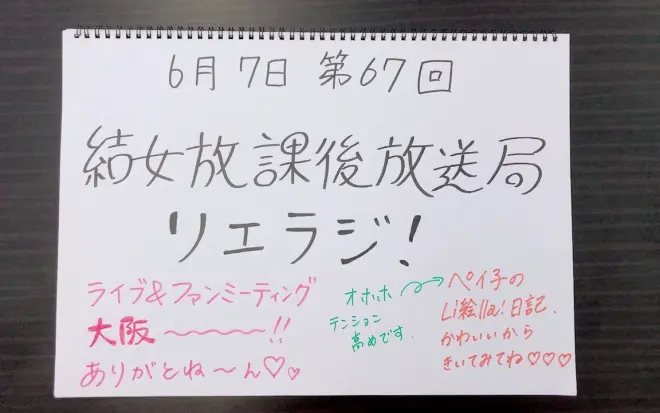 6月7日 第67回
結女放課後放送局
リエラジ!
ライブ&ファンミーティング
大阪〜〜〜〜!!
ありがとね〜ん♡♡
オホホ
テンション
高めです.
ペイ子の
Li絵lla!日記.
かわいいから
きいてみてね♡♡♡